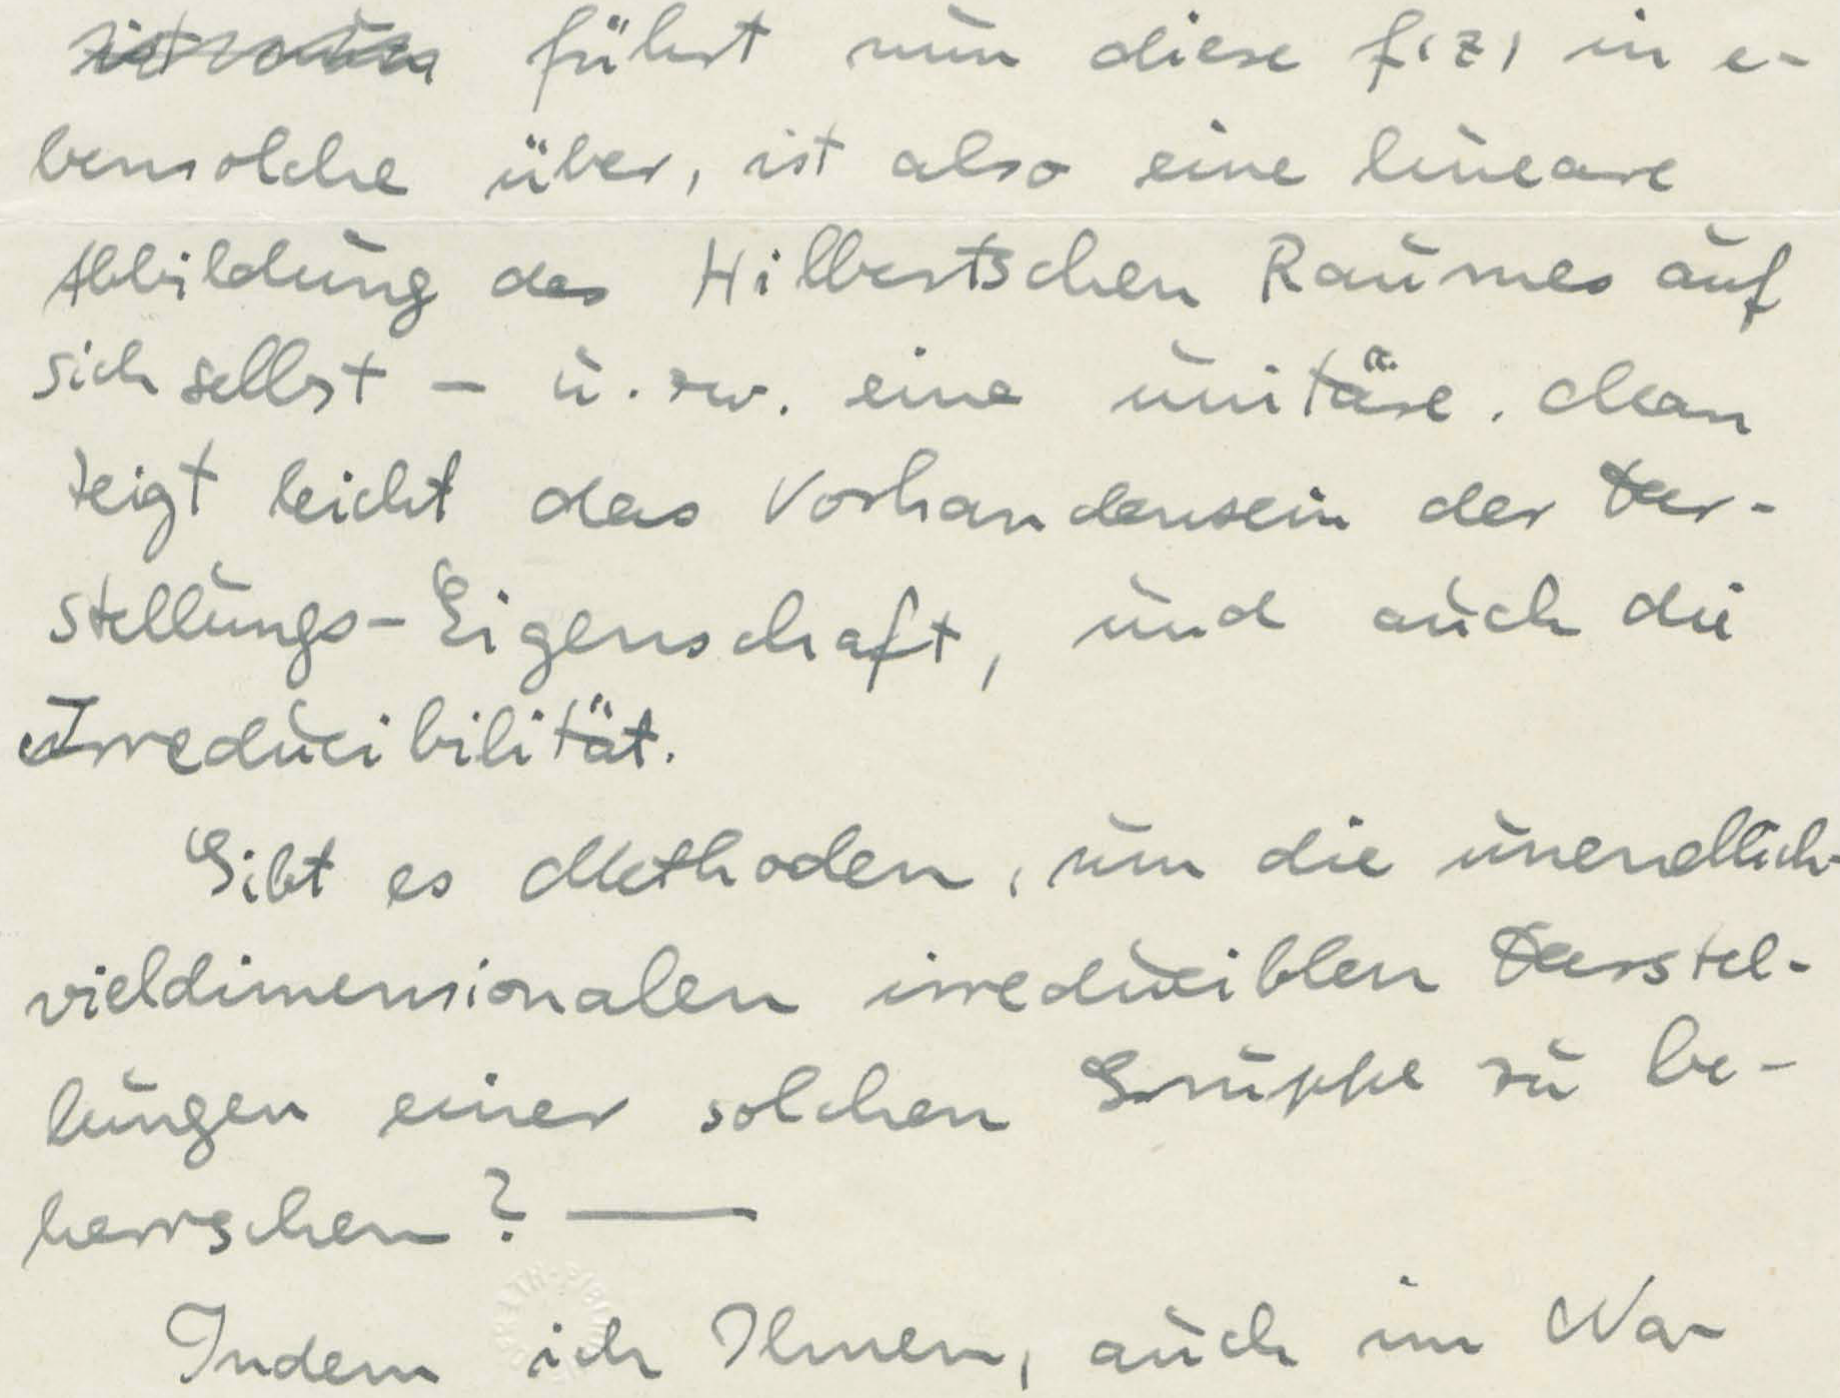 führt nun diese f(z) in e-
bensolche über, ist also eine lineare
Abbildung des Hilbertschen Raumes auf
sich selbst – u. zw. eine unitäre. Man
zeigt leicht das Vorhandensein der Dar-
stellungs-Eigenschaft, und auch die
Irreducibilität.
Gibt es Methoden, um die unendlich-
vieldimensionalen irreduciblen Darstel-
lungen einer solchen Gruppe zu be-
herrschen? —
Indem ich Ihnen, auch im Na-